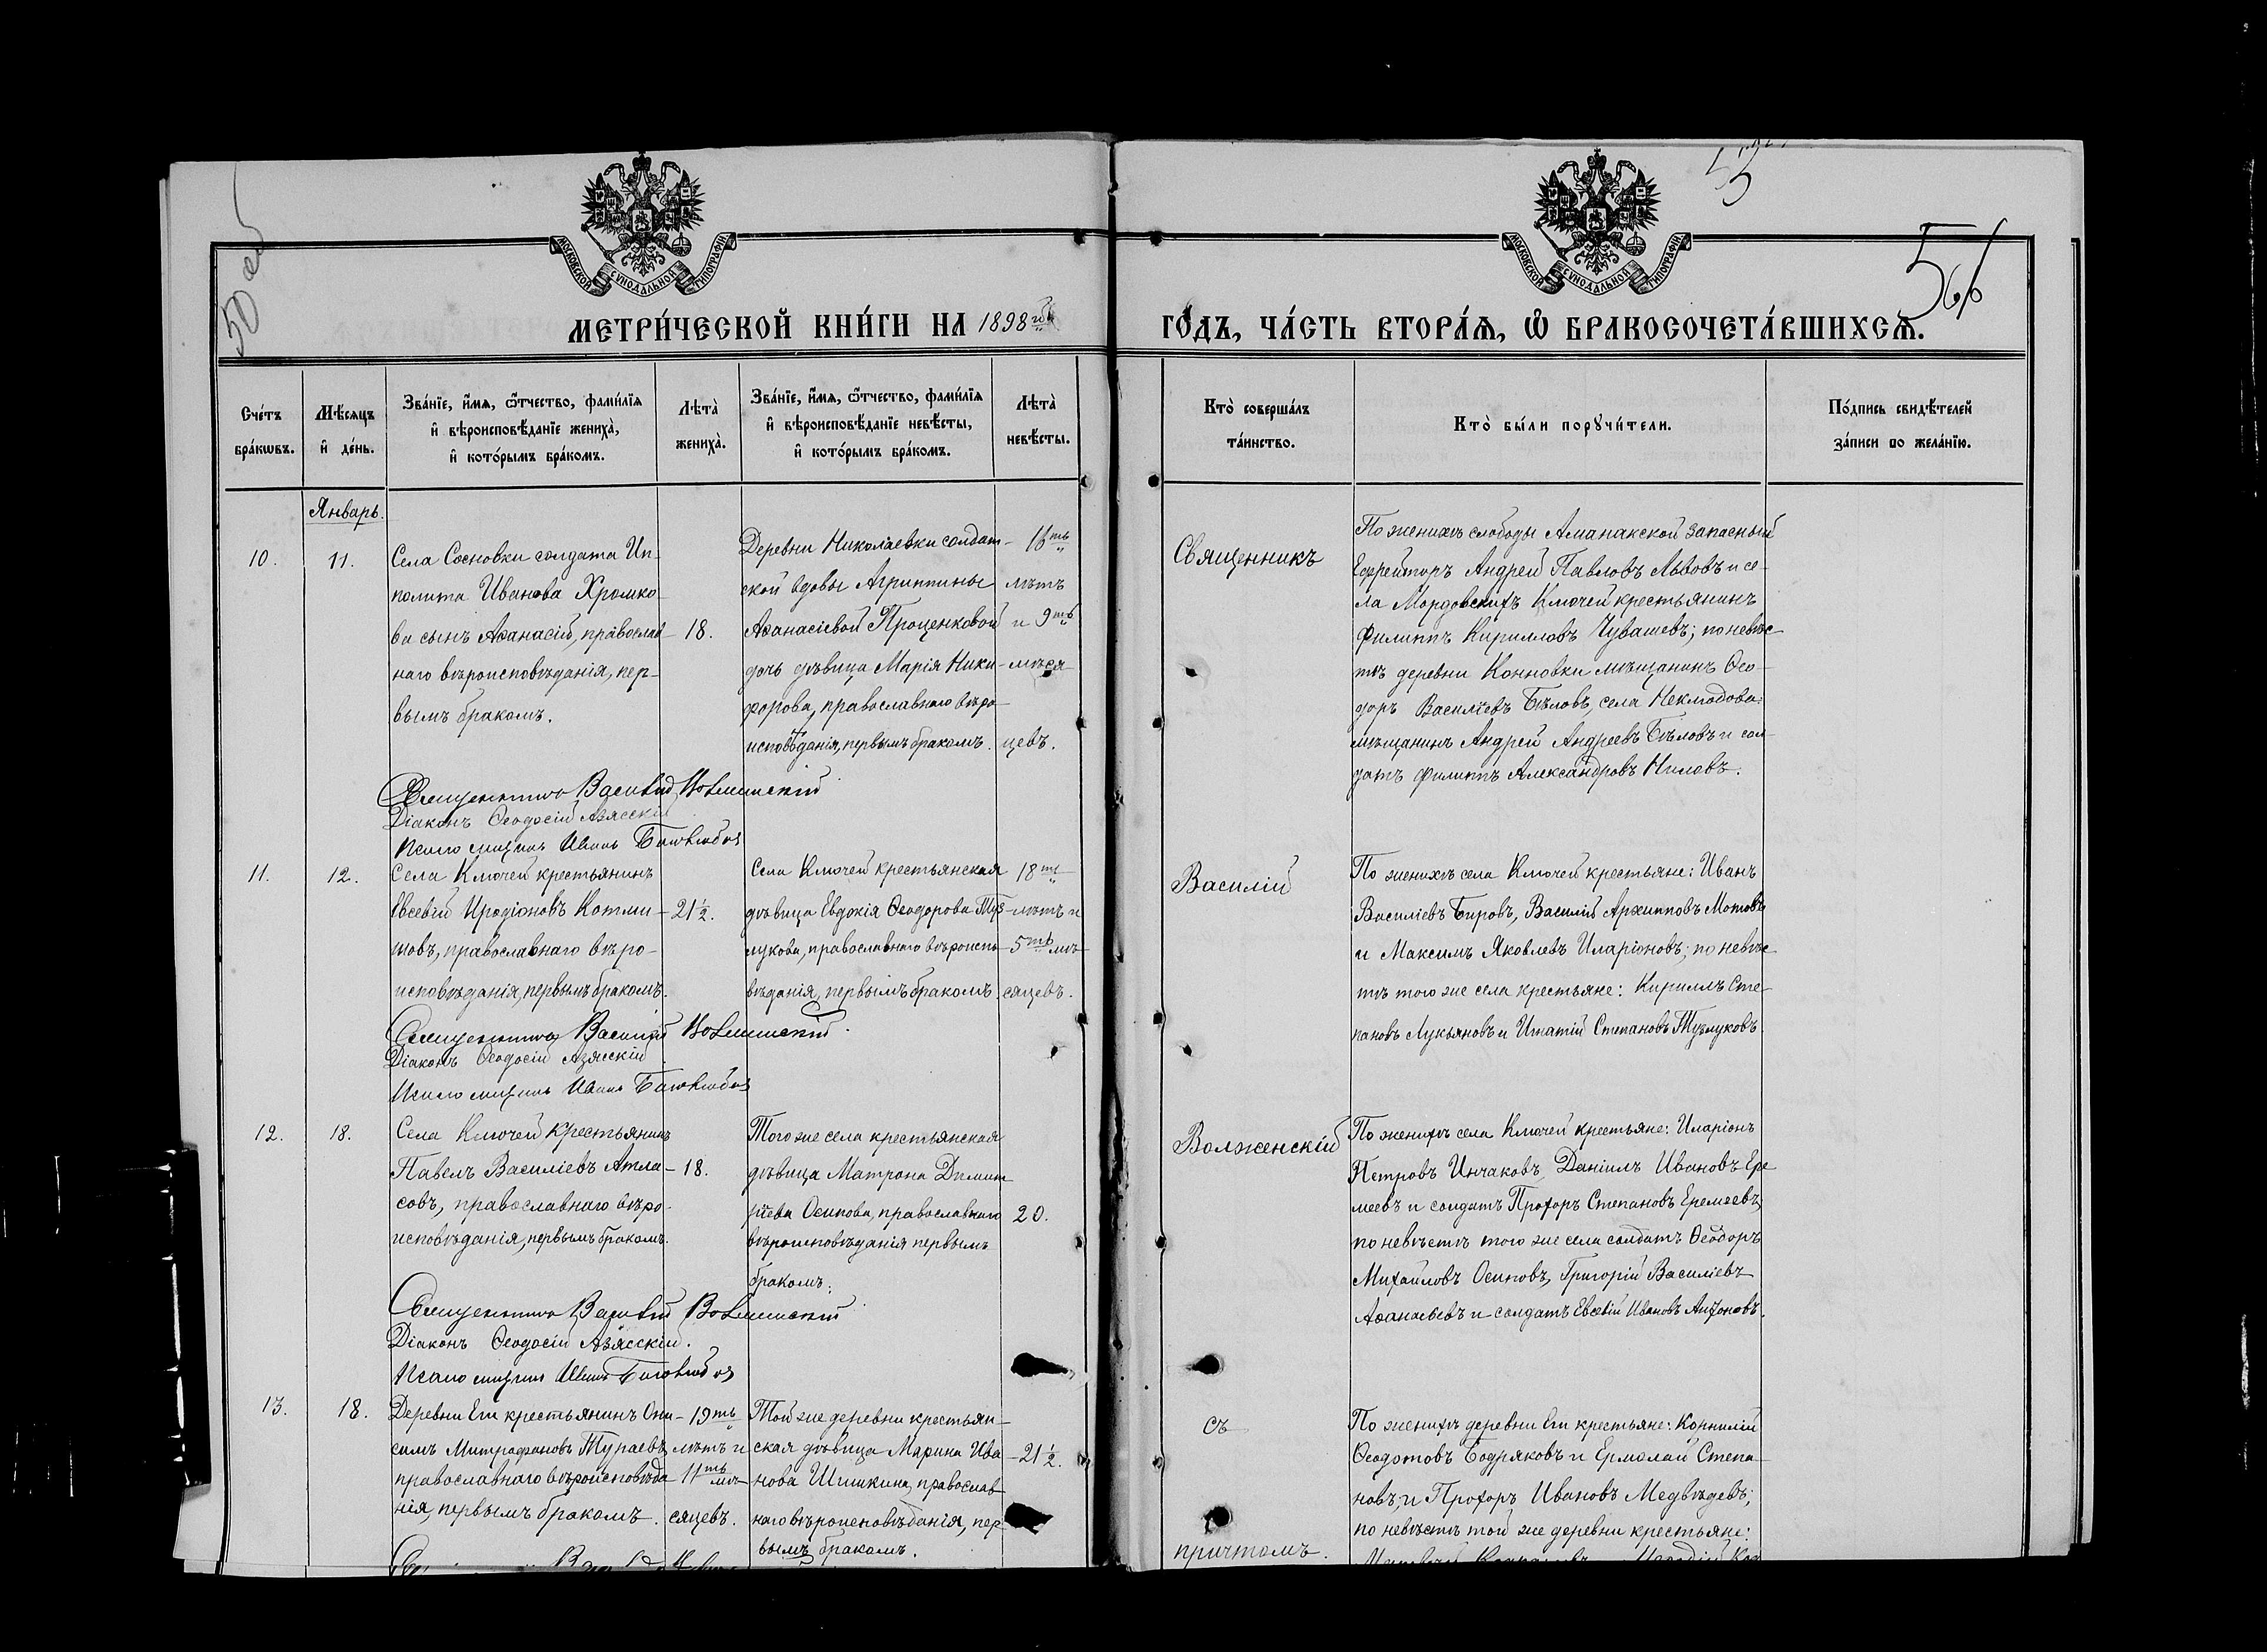 50
55
56
МОСКОВСКОЙ СѴНОДАЛЬНОЙ ТИПОГРАФІИ
МОСКОВСКОЙ СѴНОДАЛЬНОЙ ТИПОГРАФІИ
МЕТРИ́ЧЕСКОЙ КНИ́ГИ НА 1898 й
ГО́ДЪ, ЧА́СТЬ ВТОРА́Ѧ, Ѡ҆ БРАКОСОЧЕТА́ВШИХСѦ.
Сче́тъ бра́кѡвъ.
Мѣ́сяцъ и҆ де́нь.
Зва́нїе, и҆́мѧ, ѻ҆́тчество, фами́лїѧ
и҆ вѣроисповѣ́данїе жениха̀,
и҆ кото́рымъ бра́комъ.
Лѣта̀ жениха̀.
Зва́нїе, и҆́мѧ, ѻ҆́тчество, фами́лїѧ
и҆ вѣроисповѣ́данїе невѣ́сты,
и҆ кото́рымъ бра́комъ.
Лѣта̀ невѣ́сты.
Кто̀ соверша́лъ
та́инство.
Кто̀ бы́ли порꙋчи́тели.
По́дпись свидѣ́телей
за́писи по жела́нїю.
Январь.
10.
11.
Села Сосновки солдата Ип-
полита Иванова Хромко-
ва сынъ Аѳанасій, православ-
наго вѣроисповѣданія, пер-
вымъ бракомъ.
18.
Деревни Николаевки солдат-
ской вдовы Агриппины
Аѳанасіевой Проценковой
дочь дѣвица Марія Ники-
форова, православнаго вѣро-
исповѣданія, первымъ бракомъ.
16ть
лѣтъ
и 9ть
мѣся-
цевъ.
Священникъ
По женихѣ слободы Аманакской запасный
Ефрейторъ Андрей Павловъ Львовъ и се-
ла Мордовскихъ Ключей крестьянинъ
Филиппъ Кирилловъ Чувашевъ; по невѣс-
тѣ деревни Конновки мѣщанинъ Ѳео-
доръ Василіевъ Бѣловъ, села Неклюдова:
мѣщанинъ Андрей Андреевъ Бѣловъ и сол-
датъ Филиппъ Александровъ Ниловъ.
Священникъ Василій Волженскій
Діаконъ Ѳеодосій Азясскій
Псаломщикъ Иванъ Боголюбовъ
11.
12.
Села Ключей крестьянинъ
Евсевій Иродіоновъ Котми-
шовъ, православнаго вѣро-
исповѣданія, первымъ бракомъ.
21½.
Села Ключей крестьянская
дѣвица Евдокія Ѳеодорова Туз-
лукова, православнаго вѣроиспо-
вѣданія, первымъ бракомъ.
18ть
лѣтъ и
5ть мѣ-
сяцевъ.
Василій
По женихѣ села Ключей крестьяне: Иванъ
Василіевъ Бировъ, Василій Архипповъ Мотовъ
и Максимъ Яковлевъ Иларіоновъ; по невѣс-
тѣ того же села крестьяне: Кириллъ Сте-
пановъ Лукьяновъ и Игнатій Степановъ Тузлуковъ.
Священникъ Василій Волженскій.
Діаконъ Ѳеодосій Азясскій
Псаломщикъ Иванъ Боголюбовъ
12.
18.
Села Ключей крестьянинъ
Павелъ Василіевъ Атла-
совъ, православнаго вѣро-
исповѣданія, первымъ бракомъ.
18.
Того же села крестьянская
дѣвица Матрона Димит-
ріева Осипова, православнаго
вѣроисповѣданія первымъ
бракомъ.
20.
Волженскій
По женихѣ села Ключей крестьяне: Иларіонъ
Петровъ Инчаковъ, Даніилъ Ивановъ Ере-
меевъ и солдатъ Прохоръ Степановъ Еремеевъ;
по невѣстѣ того же села солдатъ Ѳеодоръ
Михайловъ Осиповъ, Григорій Василіевъ
Аѳанасьевъ и солдатъ Евсевій Ивановъ Антоновъ.
Священникъ Василій Волженскій
Діаконъ Ѳеодосій Азясскій.
Псаломщикъ Иванъ Боголюбовъ
13.
18.
Деревни Еги крестьянинъ Они-
симъ Митрофановъ Тураевъ,
православнаго вѣроисповѣда-
нія, первымъ бракомъ.
19ть
лѣтъ и
11ть мѣ-
сяцевъ.
Той же деревни крестьян-
ская дѣвица Марина Ива-
нова Шишкина, православ-
наго вѣроисповѣданія, пер-
вымъ бракомъ.
21½.
съ
причтомъ.
По женихѣ деревни Еги крестьяне: Корнилій
Ѳеодотовъ Бодряковъ и Ермолай Степа-
новъ; и Прохоръ Ивановъ Медвѣдевъ;
по невѣстѣ той же деревни крестьяне: